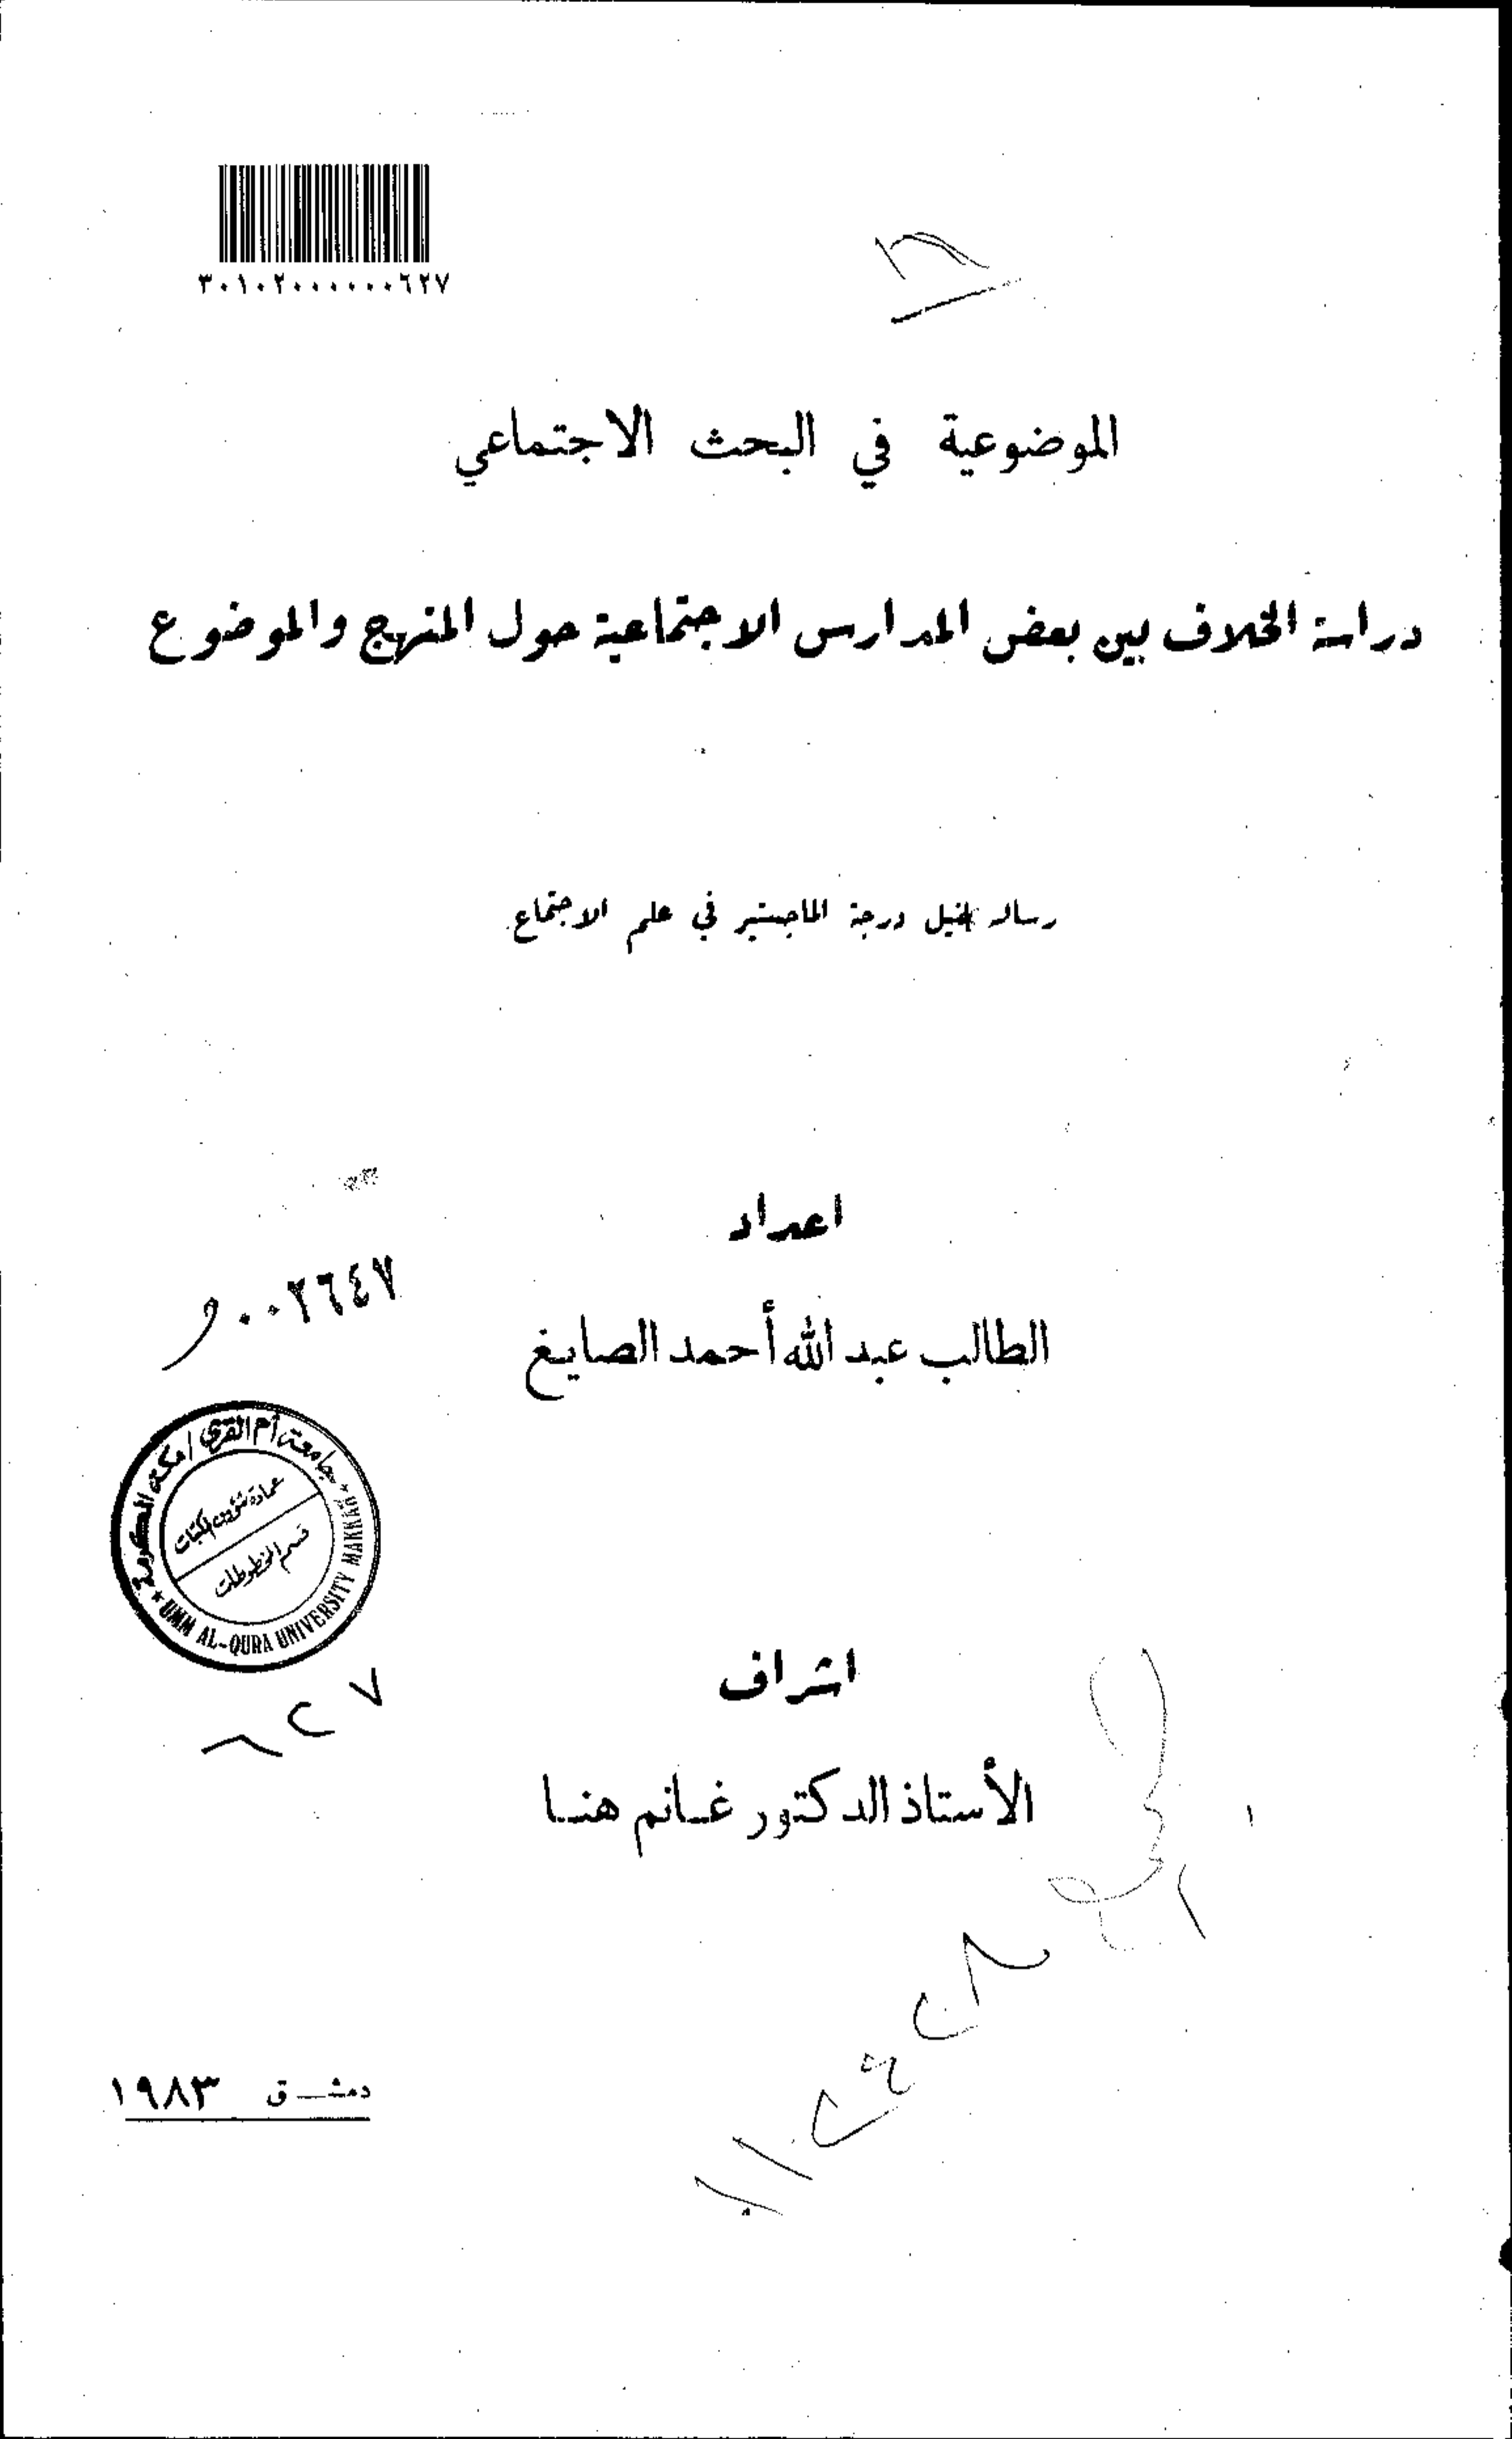 ٣٠١٠٢٠٠٠٠٠٠٦٢٧
الموضوعية في البحث الاجتماعي
دراسة الخلاف بين بعض المدارس الاجتماعية حول المنهج والموضوع
رسالة لنيل درجة الماجستير في علم الاجتماع
اعداد
٠٠٢٦٤٧
الطالب عبد الله أحمد الصايغ
جامعة أم القرى / مكة المكرمة
عمادة شؤون المكتبات
قسم المخطوطات
UMM AL-QURA UNIVERSITY MAKKAH
٦٢٧
اشراف
الأستاذ الدكتور غانم هنا
دمشق ١٩٨٣